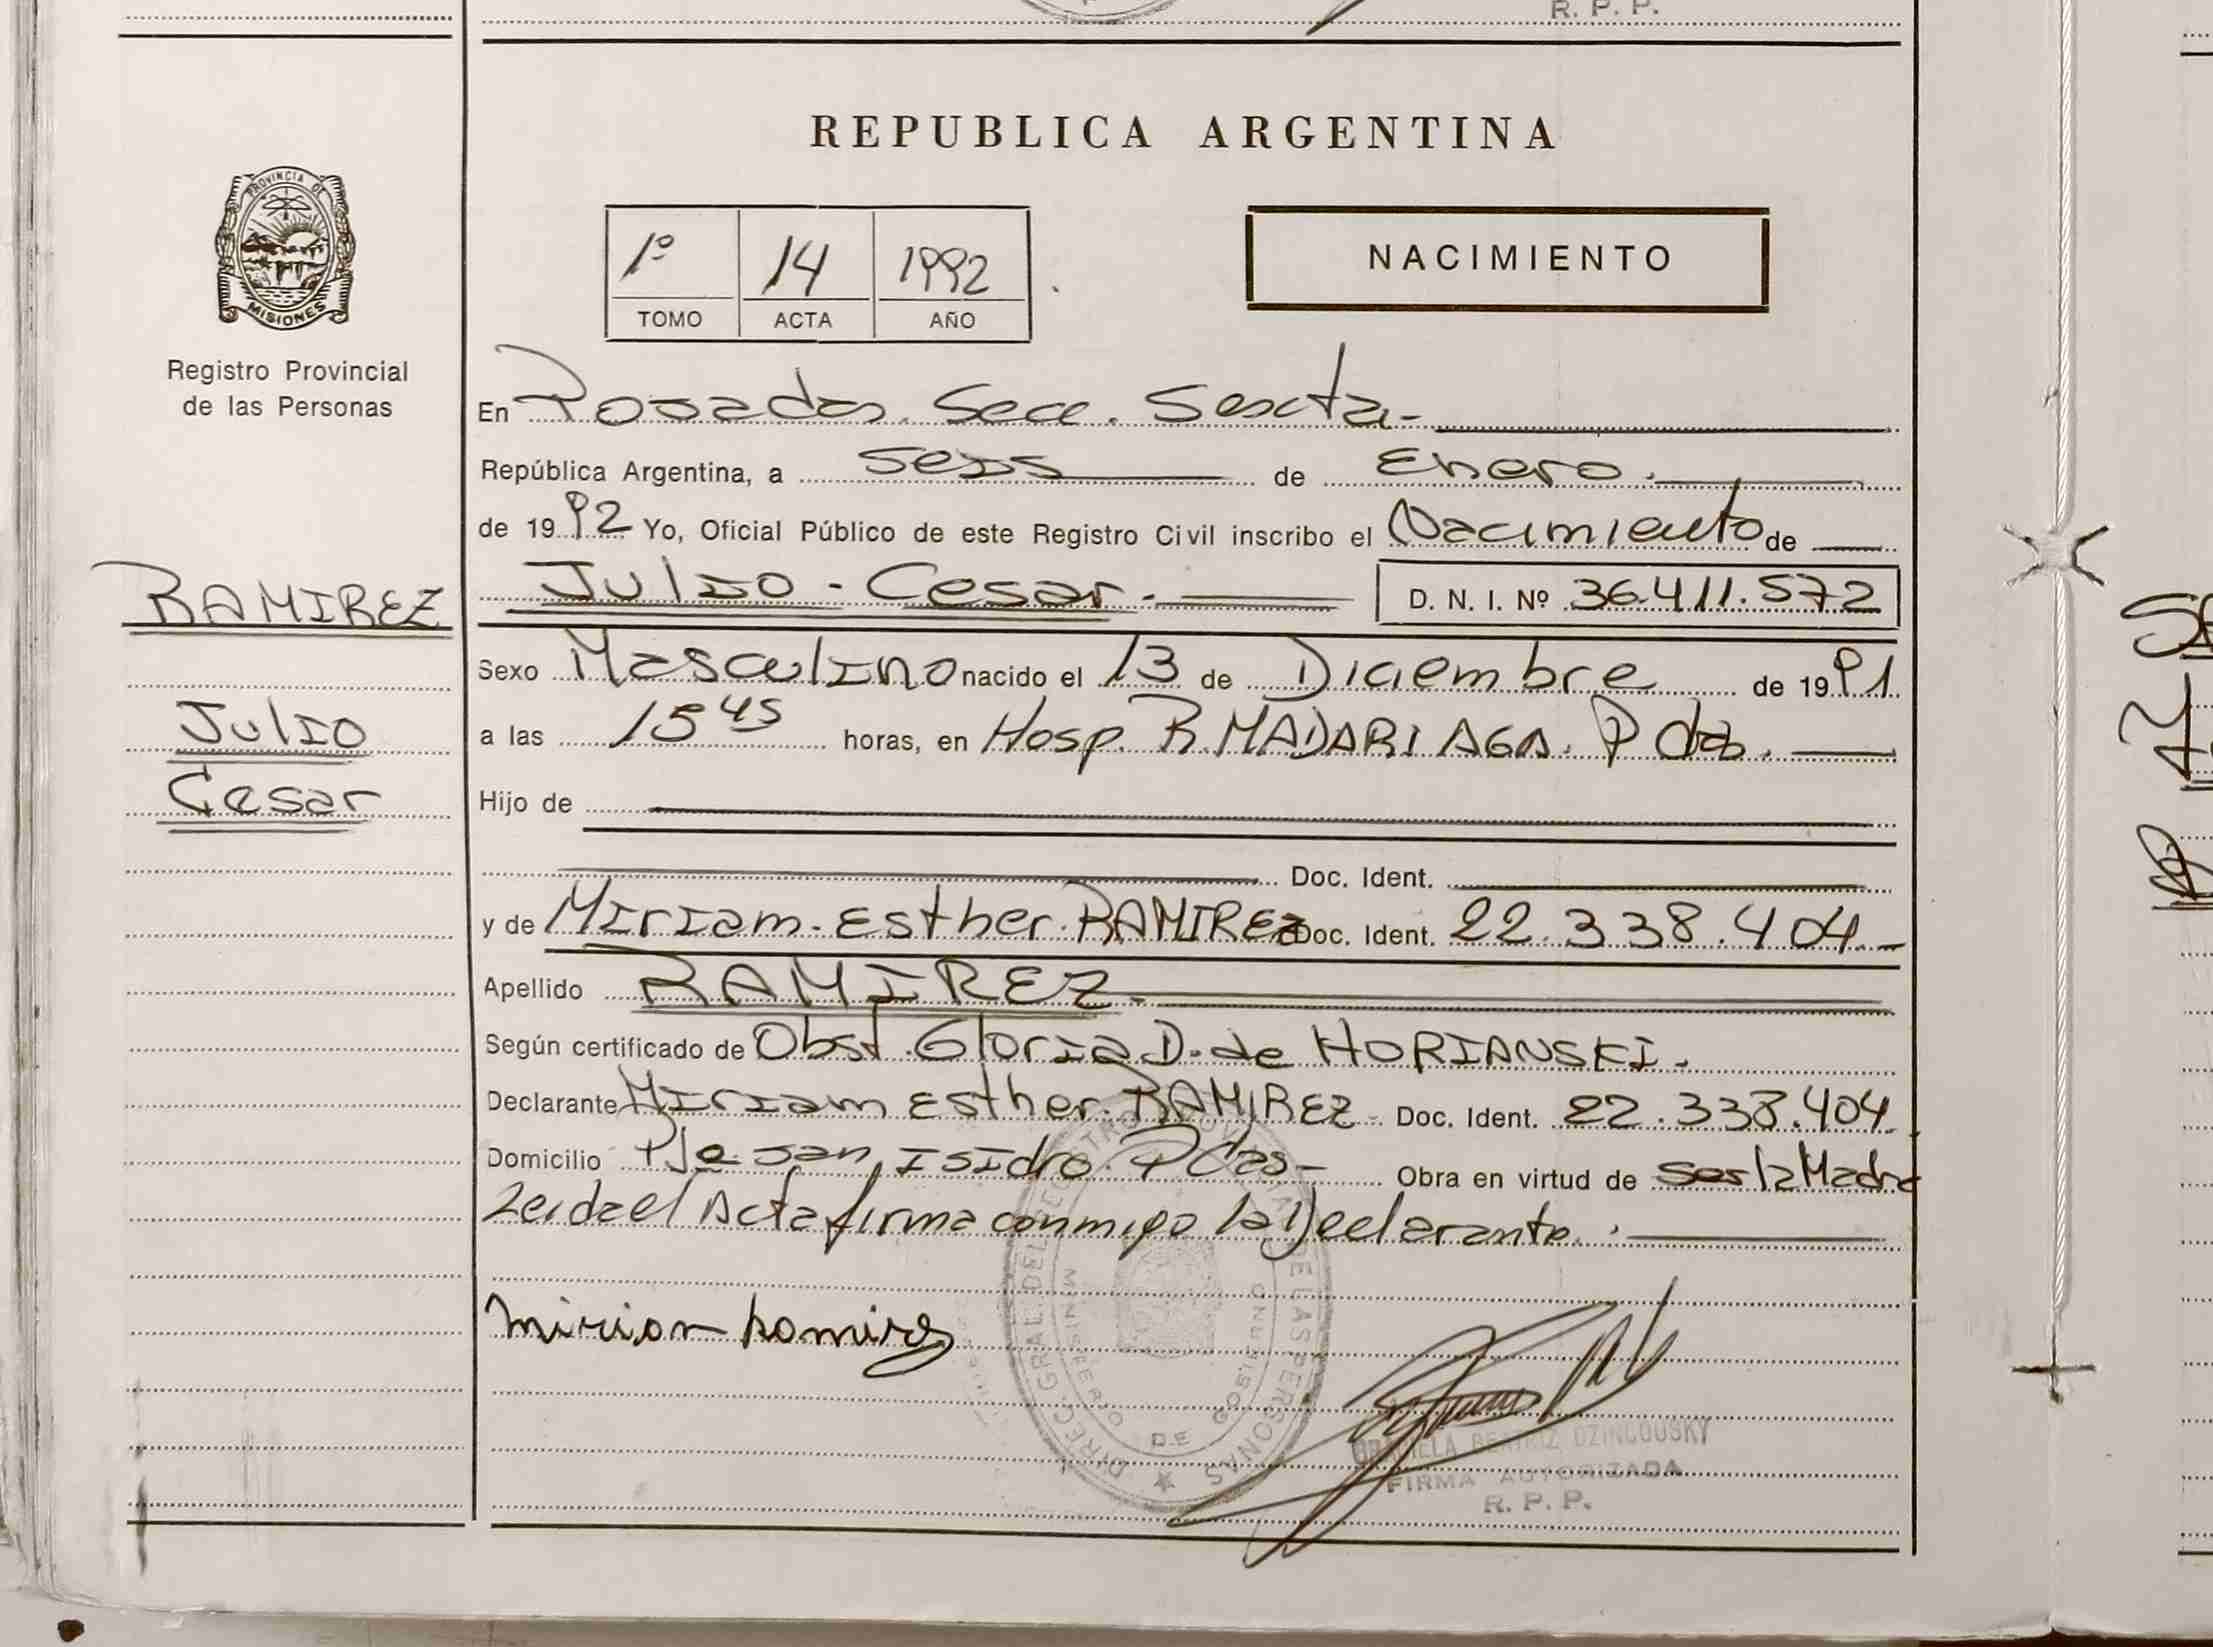 R. P. P.
REPUBLICA ARGENTINA
PROVINCIA DE
MISIONES
Registro Provincial
de las Personas
1º 14 1992
TOMO ACTA AÑO
NACIMIENTO
En Posadas. Secc. Sexta-
República Argentina, a Seis de Enero.
de 1992 Yo, Oficial Público de este Registro Civil inscribo el Nacimiento de
RAMIREZ
Julio
Cesar
Julio - Cesar - D. N. I. Nº 36.411.572
Sexo Masculino nacido el 13 de Diciembre de 1991
a las 15 45 horas, en Hosp. R. MADARIAGA. Pdas.
Hijo de
Doc. Ident.
y de Miriam. Esther. RAMIREZ Doc. Ident. 22.338.404.-
Apellido RAMIREZ.
Según certificado de Obst. Gloria D. de HORIANSKI.
Declarante Miriam Esther. RAMIREZ Doc. Ident. 22.338.404.
Domicilio Pje. San Isidro. Pdas- Obra en virtud de ser la Madre
Leida el Acta firma conmigo la Declarante.
mirian Ramirez
DIREC. GRAL. DEL REGISTRO PROVINCIAL DE LAS PERSONAS
MINISTERIO DE GOBIERNO
GRACIELA BEATRIZ DZINCOUSKY
FIRMA AUTORIZADA
R. P. P.